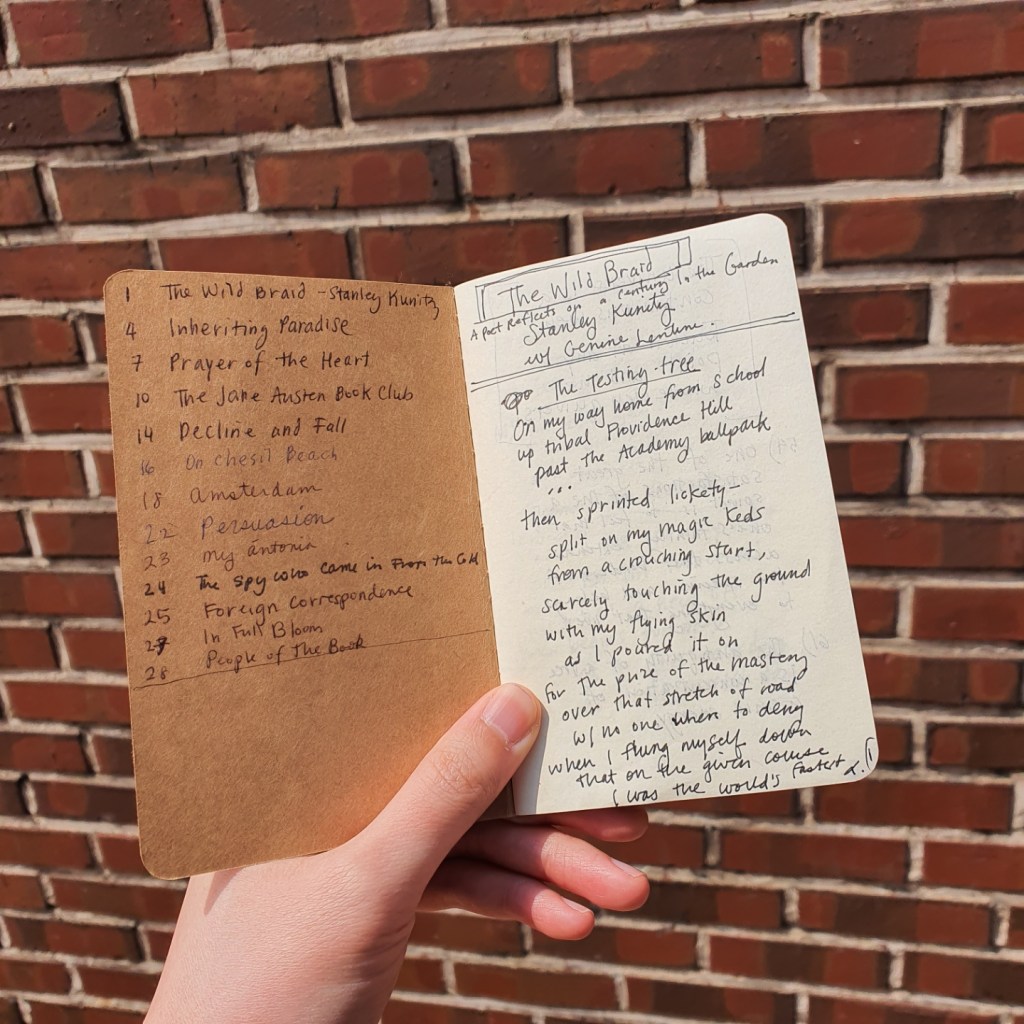 1 The Wild Braid - Stanley Kunitz
4 Inheriting Paradise
7 Prayer of the Heart
10 The Jane Austen Book Club
14 Decline and Fall
16 On Chesil Beach
18 Amsterdam
22 Persuasion
23 My Ántonia
24 The Spy who came in From the Cold
25 Foreign Correspondence
27 In Full Bloom
28 People of the Book
The Wild Braid
A Poet Reflects on a Century In the Garden
Stanley Kunitz
w/ Genine Lentine.
The Testing-tree
On my way home from school
up tribal Providence Hill
past the Academy ballpark
...
then sprinted lickety-
split on my magic Keds
from a crouching start,
scarcely touching the ground
with my flying skin
as I poured it on
for the prize of the mastery
over that stretch of road
w/ no one where to deny
when I flung myself down
that on the given course
I was the world's fastest